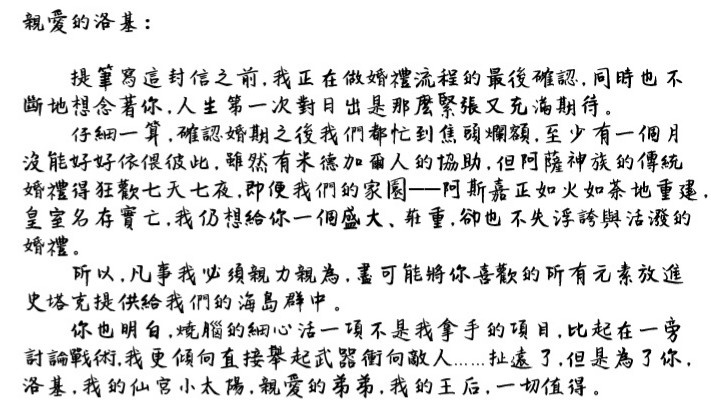 親愛的洛基：
提筆寫這封信之前，我正在做婚禮流程的最後確認，同時也不
斷地想念著你，人生第一次對日出是那麼緊張又充滿期待。
仔細一算，確認婚期之後我們都忙到焦頭爛額，至少有一個月
沒能好好依偎彼此，雖然有米德加爾人的協助，但阿薩神族的傳統
婚禮得狂歡七天七夜，即便我們的家園──阿斯嘉正如火如荼地重建，
皇室名存實亡，我仍想給你一個盛大、莊重，卻也不失浮誇與活潑的
婚禮。
所以，凡事我必須親力親為，盡可能將你喜歡的所有元素放進
史塔克提供給我們的海島群中。
你也明白，燒腦的細心活一項不是我拿手的項目，比起在一旁
討論戰術，我更傾向直接舉起武器衝向敵人……扯遠了，但是為了你，
洛基，我的仙宮小太陽，親愛的弟弟，我的王后，一切值得。